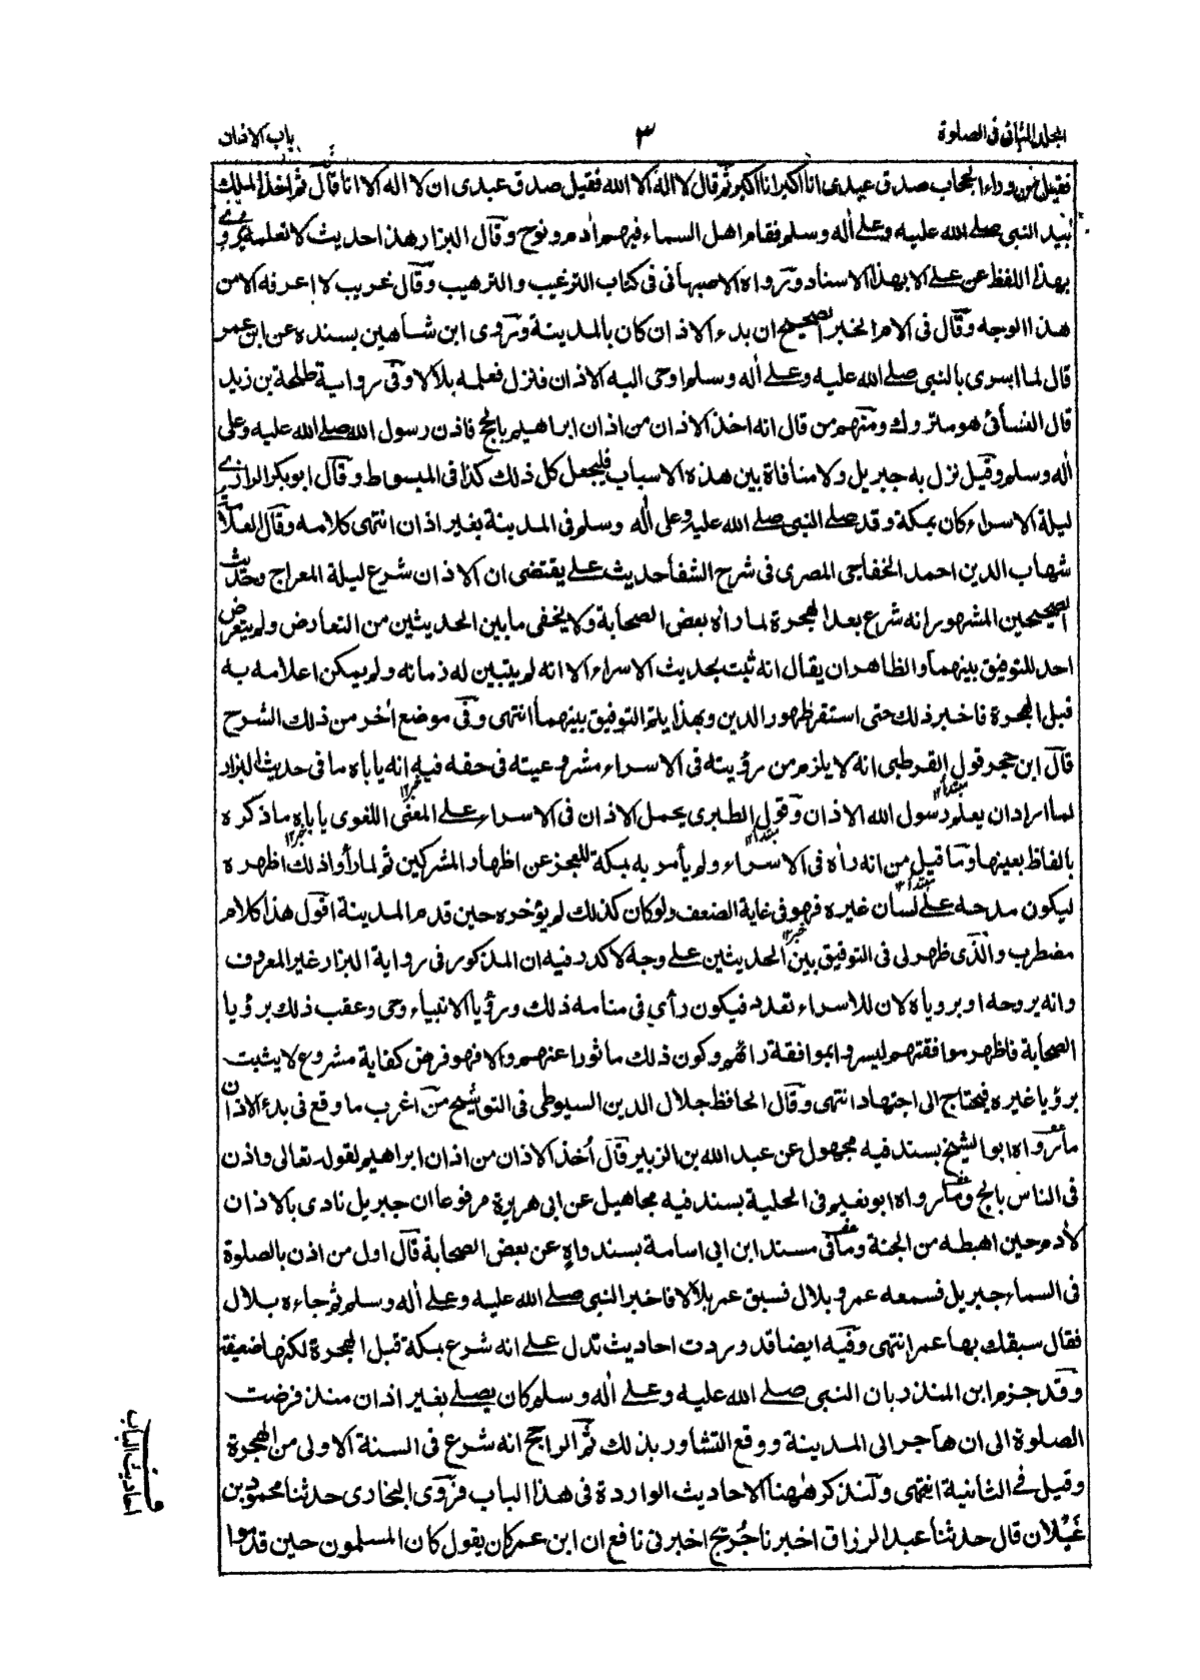 المجلد الثانی فی الصلوة ۳ باب الاذان
فقیل من وراء الحجاب صدق عبدی انا اکبر انا اکبر ثم قال لا اله الا الله فقیل صدق عبدی ان لا اله الا انا قال ثم اخذ الملك
بید النبی صلے الله علیه وعلے أله وسلم فقام اهل السماء فیهم أدم ونوح وقال البزار هذا حدیث لا نعلمه یروی
بهذا اللفظ عن علے الا بهذا الاسناد ورواه الاصبهانی فی کتاب الترغیب والترهیب وقال غریب لا اعرفه الا من
هذا الوجه وقال فی الام الخبر الصحیح ان بدء الاذان کان بالمدینة وروی ابن شاهین بسنده عن ابن عمر
قال لما اسری بالنبی صلے الله علیه وعلے أله وسلم اوحی الیه الاذان فنزل فعلمه بلالا وفی روایة طلحة بن زید
قال النسائی هو متروك ومنهم من قال انه اخذ الاذان من اذان ابراهیم بالحج فاذن رسول الله صلے الله علیه وعلی
أله وسلم وقیل نزل به جبریل ولا منافاة بین هذه الاسباب فلیجعل کل ذلك کذا فی المبسوط وقال ابو بکر الرازے
لیلة الاسراء کان بمکة وقد صلے النبی صلے الله علیه وعلی أله وسلم فی المدینة بغیر اذان انتهی کلامه وقال العلامة
شهاب الدین احمد الخفاجی المصری فی شرح الشفا حدیث علے یقتضی ان الاذان شرع لیلة المعراج وحدیث
الصحیحین المشهور انه شرع بعد الهجرة لما رأه بعض الصحابة ولا یخفی ما بین الحدیثین من التعارض ولم یتعرض
احد للتوفیق بینهما والظاهر ان یقال انه ثبت بحدیث الاسراء الا انه لم یتبین له زمانه ولم یمکن اعلامه به
قبل الهجرة فاخبر ذلك حتی استقر ظهور الدین وبهذا یتم التوفیق بینهما انتهی وفی موضع أخر من ذلك الشرح
قال ابن حجر قول القرطبی انه لا یلزم من رؤیته فی الاسراء مشروعیته فی حقه فیه انه یاباه ما فی حدیث البزار
لما اراد ان یعلم رسول الله الاذان وقول الطبری یحمل الاذان فی الاسراء علے المعنی اللغوی یاباه ما ذکره
بالفاظ بعینها وما قیل من انه رأه فی الاسراء ولم یأمر به بمکة للعجز عن اظهار المشرکین ثم لما رأوا ذلك اظهره
لیکون مدحه علے لسان غیره فهو فی غایة الضعف ولو کان کذلك لم یؤخره حین قدم المدینة اقول هذا کلام
مضطرب والذی ظهر لی فی التوفیق بین الحدیثین علے وجه لا کدر فیه ان المذکور فی روایة البزار غیر المعروف
وانه بروحه او برویاه لان للاسراء تعدد فیکون رأی فی منامه ذلك ورؤیا الانبیاء وحی وعقب ذلك برؤیا
الصحابة فاظهر موافقتهم لیسروا بموافقة رائهم وکون ذلك ماثورا عنهم والا فهو فرض کفایة مشروع لا یثبت
برؤیا غیره فیحتاج الی اجتهاد انتهی وقال الحافظ جلال الدین السیوطی فی التوشیح من اغرب ما وقع فی بدء الاذان
ما رواه ابو الشیخ بسند فیه مجهول عن عبد الله بن الزبیر قال أخذ الاذان من اذان ابراهیم لقوله تعالی واذن
فی الناس بالحج وما رواه ابو نعیم فی الحلیة بسند فیه مجاهیل عن ابی هریرة مرفوعا ان جبریل نادی بالاذان
لأدم حین اهبطه من الجنة وما فی مسند ابن ابی اسامة بسند واهٍ عن بعض الصحابة قال اول من اذن بالصلوة
فی السماء جبریل فسمعه عمر وبلال فسبق عمر بلالا فاخبر النبی صلے الله علیه وعلے أله وسلم ثم جاءه بلال
فقال سبقك بها عمر انتهی وفیه ایضا قد وردت احادیث تدل علے انه شرع بمکة قبل الهجرة لکنها ضعیفة
وقد جزم ابن المنذر بان النبی صلے الله علیه وعلے أله وسلم کان یصلے بغیر اذان منذ فرضت
الصلوة الی ان هاجر الی المدینة ووقع التشاور بذلك ثم الراجح انه شرع فی السنة الاولی من الهجرة
وقیل فے الثانیة انتهی ولنذکر ههنا الاحادیث الواردة فی هذا الباب فروی البخاری حدثنا محمود بن
غیلان قال حدثنا عبد الرزاق اخبرنا جُریج اخبرنی نافع ان ابن عمر کان یقول کان المسلمون حین قدموا
احادیث الباب